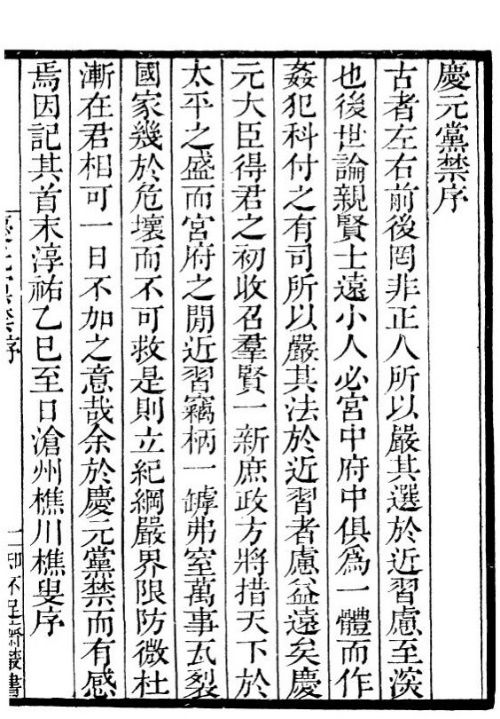 慶元黨禁序
古者左右前後罔非正人所以嚴其選於近習慮至深
也後世論親賢士遠小人必宮中府中俱爲一體而作
姦犯科付之有司所以嚴其法於近習者慮益遠矣慶
元大臣得君之初收召羣賢一新庶政方將措天下於
太平之盛而宮府之閒近習竊柄一罅弗窒萬事瓦裂
國家幾於危壞而不可救是則立紀綱嚴界限防微杜
漸在君相可一日不加之意哉余於慶元黨禁而有感
焉因記其首末淳祐乙巳至日滄州樵川樵叟序
慶元黨禁序
知不足齋叢書